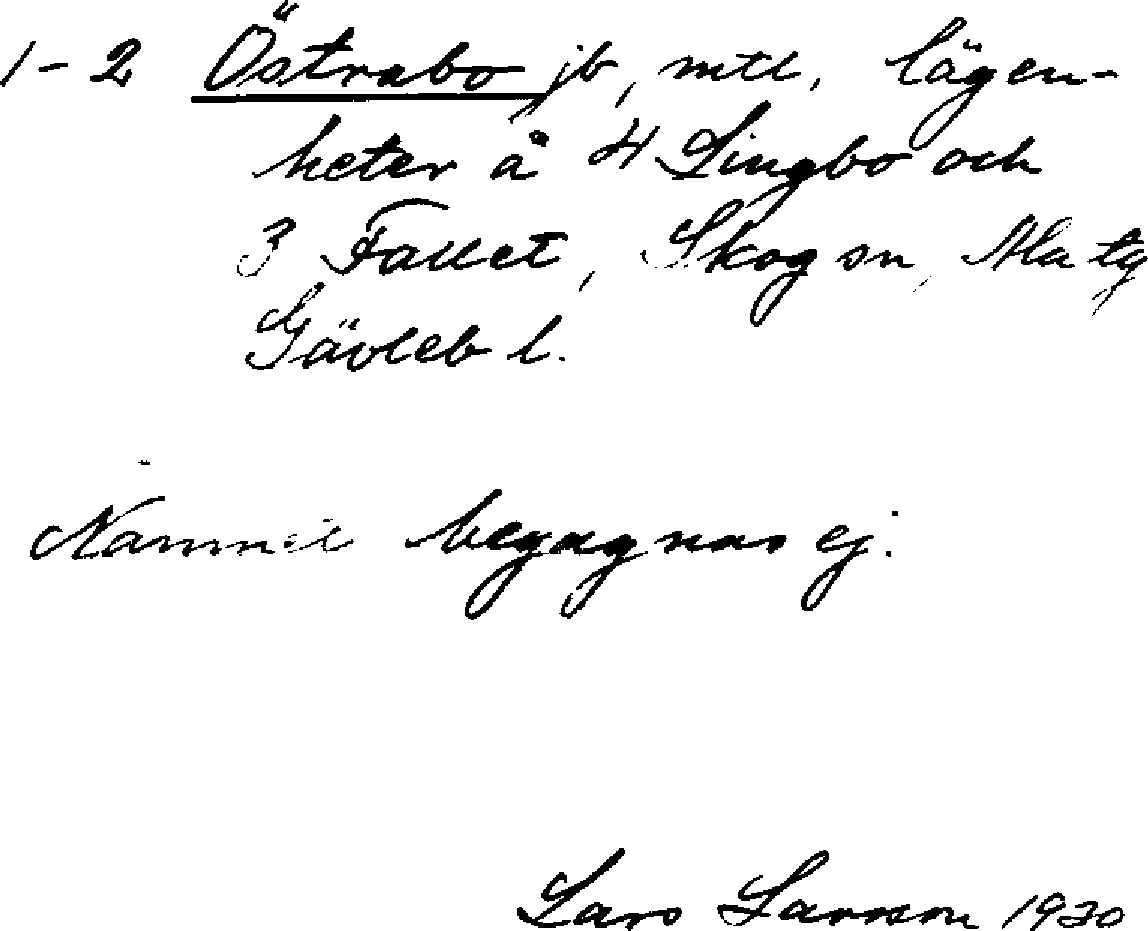 1-2 Östrabo jb, mtl, lägen-
heter å 4 Lingbo och
3 Fallet, Skog sn, Ala tg
Gävleb l.
Namnet begagnas ej.
Lars Larsson 1930